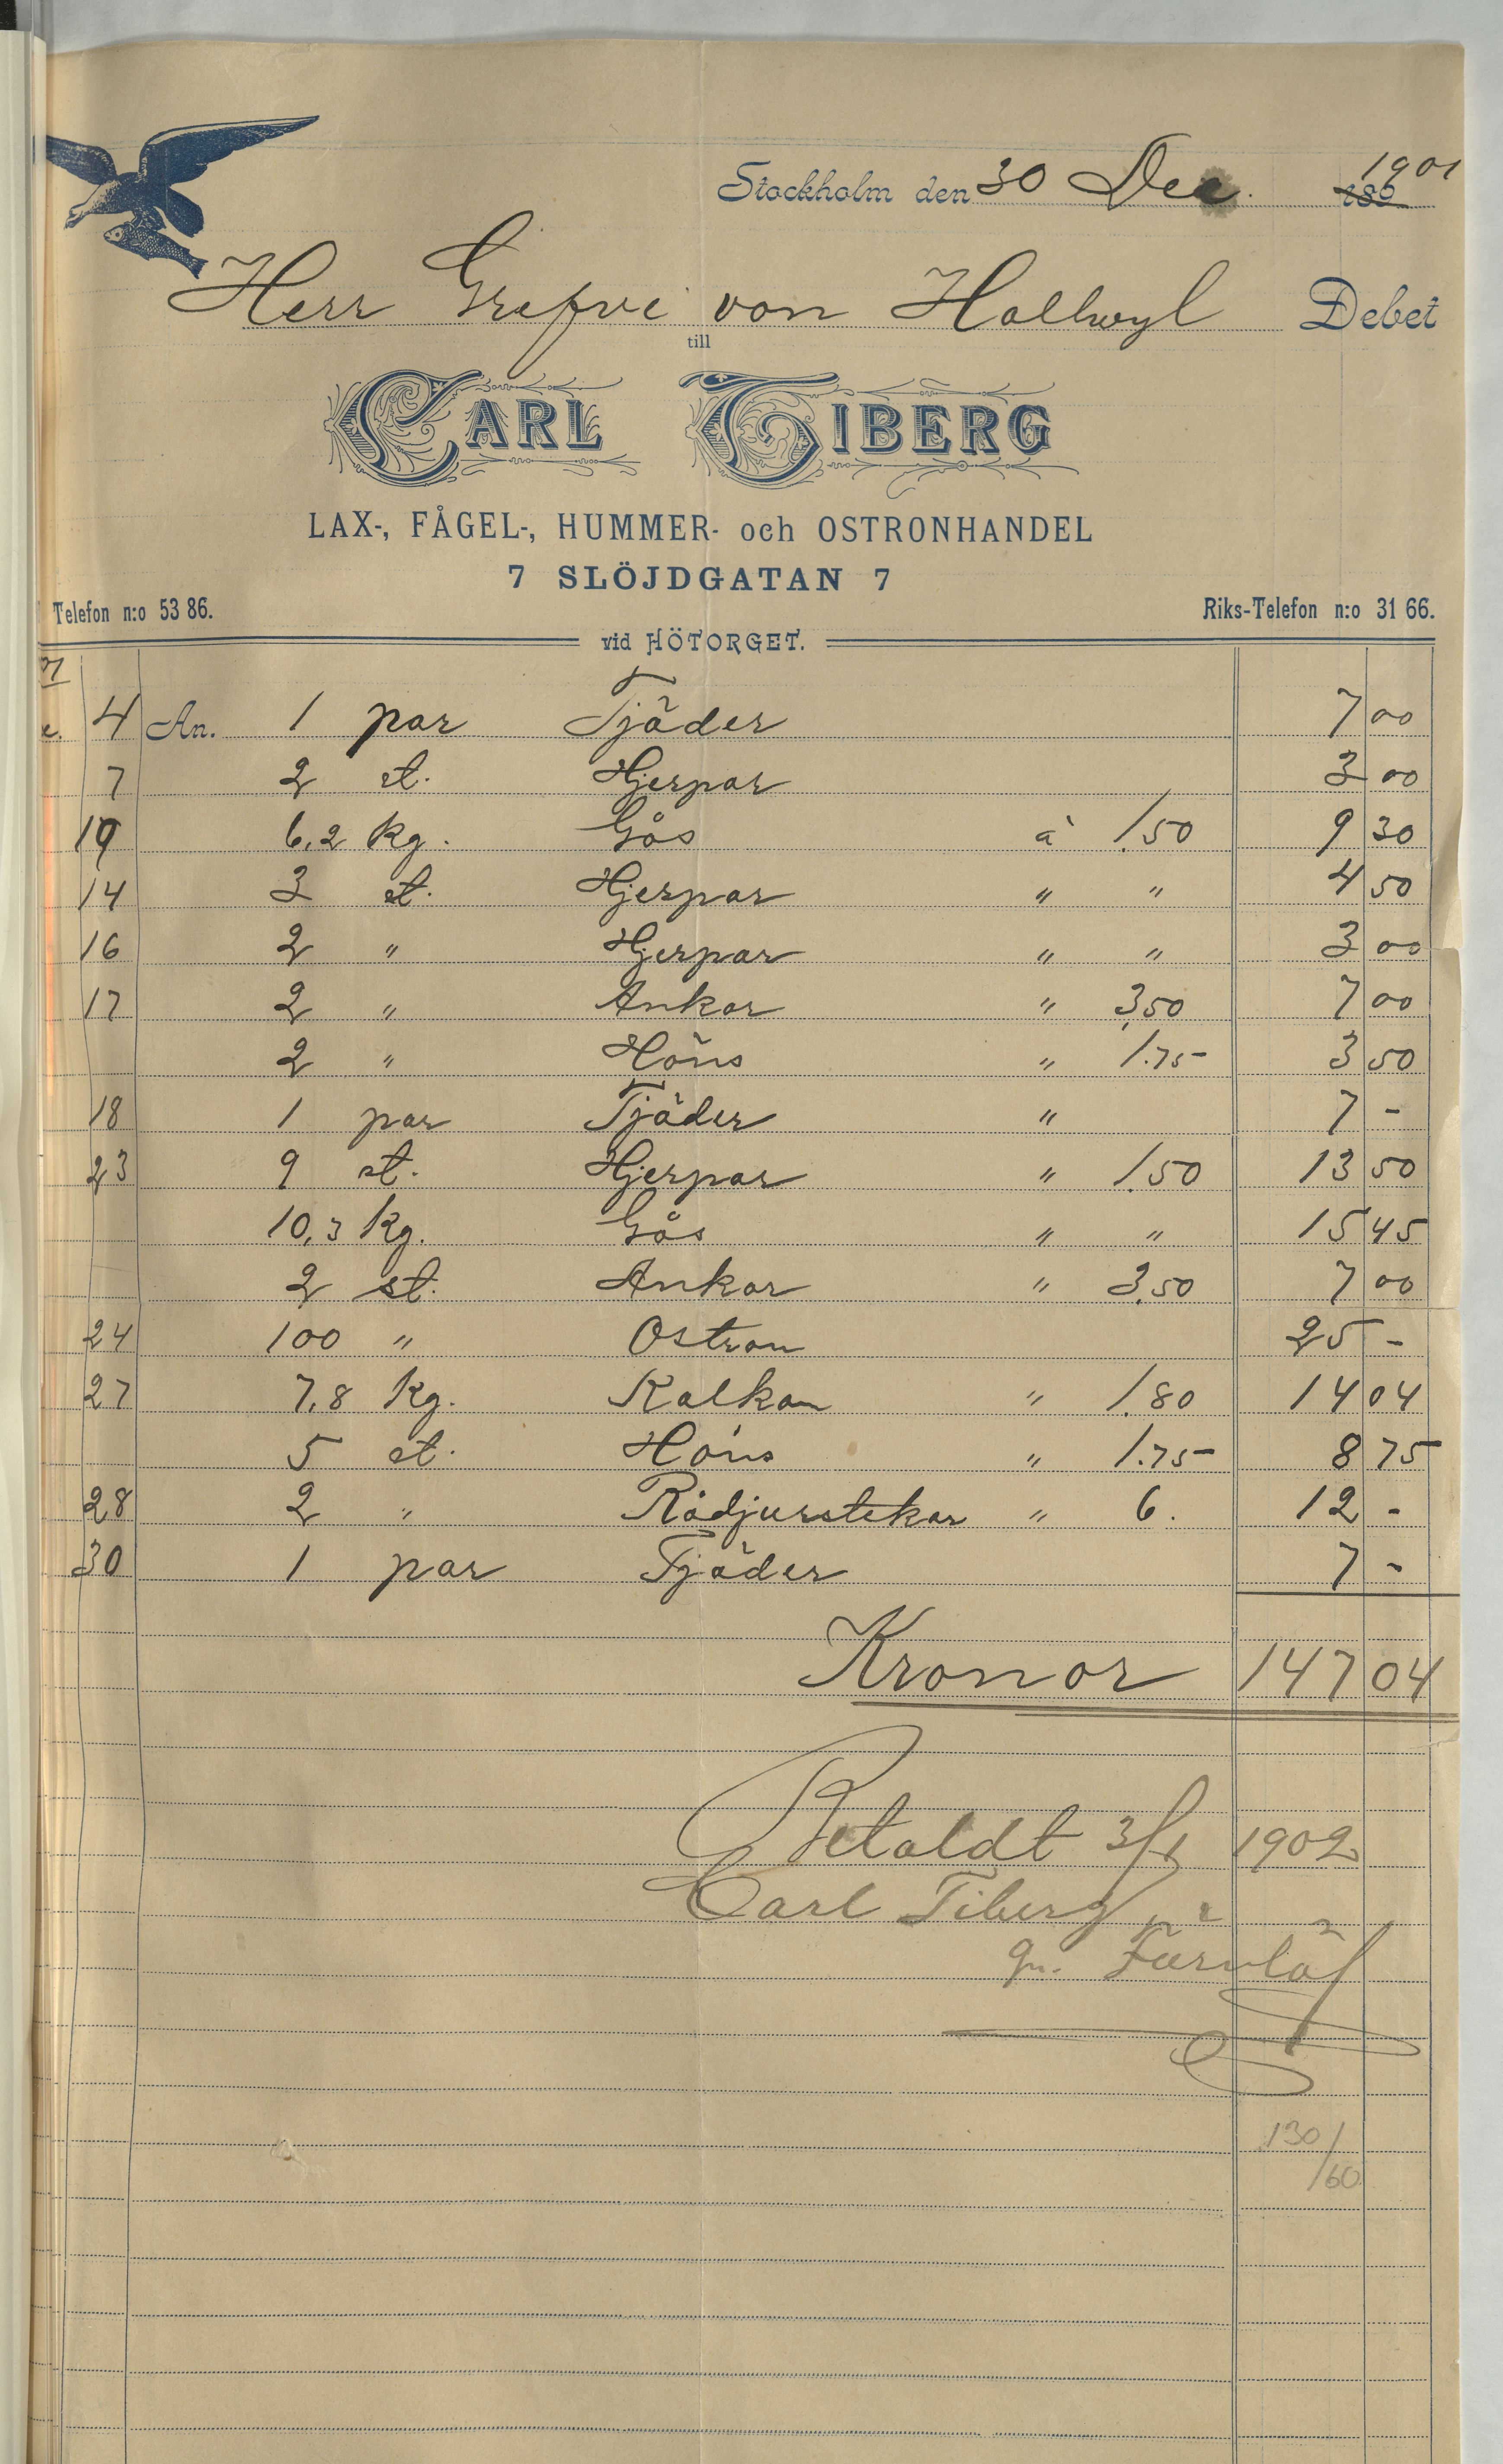 Stockholm den 30 Dec. 1901
Herr Grefve von Hallwyl Debet
till
CARL TIBERG
LAX-, FÅGEL-, HUMMER- och OSTRONHANDEL
7 SLÖJDGATAN 7
Telefon n:o 53 86. Riks-Telefon n:o 31 66.
vid HÖTORGET.
4 An. 1 par Tjäder 7 00
7 2 st. Hjerpar 3 00
6,2 kg. Gös à 1.50 9 30
14 3 st. Hjerpar " " 4 50
16 2 " Hjerpar " " 3 00
17 2 " Ankor " 3,50 7 00
2 " Höns " 1.75 3 50
18 1 par Tjäder " 7 -
23 9 st. Hjerpar " 1.50 13 50
10,3 kg. Gös " " 15 45
2 st. Ankor " 3.50 7 00
24 100 " Ostron 25 -
27 7,8 kg. Kalkon " 1.80 14 04
5 st. Höns " 1.75 8 75
28 2 " Rådjurstekar " 6. 12 -
30 1 par Tjäder 7 -
Kronor 147 04
Betaldt 3/1 1902
Carl Tiberg
130/60